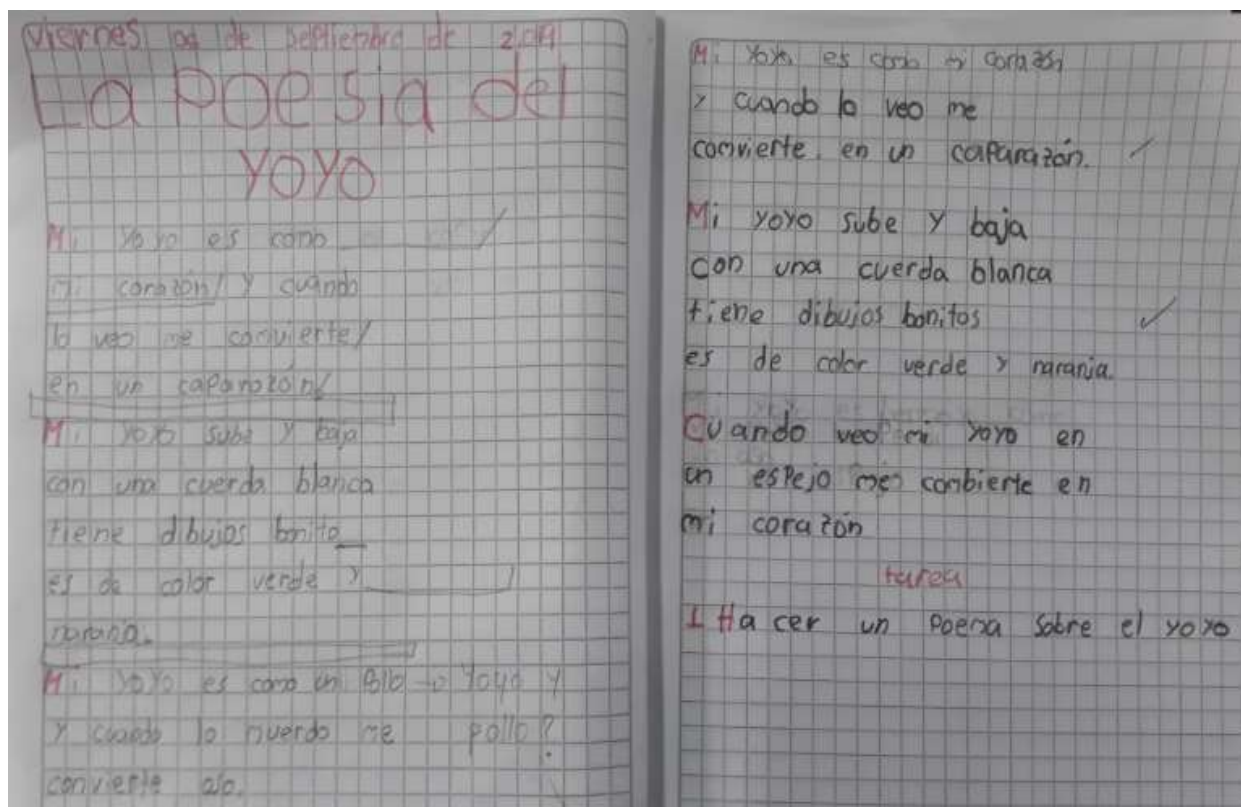 Viernes de septiembre de 2019
La Poesía del
YOYO
Mi Yoyo es como
mi corazón/ y cuando
lo veo me convierte/
en un caparazón/
Mi yoyo sube y baja
con una cuerda blanca
tiene dibujos bonito
es de color verde y
naranja.
Mi YoYo es como un Yoyo y
y cuando lo muerdo me pollo?
convierte
Mi Yoyo es como mi corazón
y cuando lo veo me
convierte en un caparazón.
Mi yoyo sube y baja
con una cuerda blanca
tiene dibujos bonitos
es de color verde y naranja.
Cuando veo mi yoyo en
un espejo me combierte en
mi corazón
tarea
1 Hacer un Poema sobre el yoyo